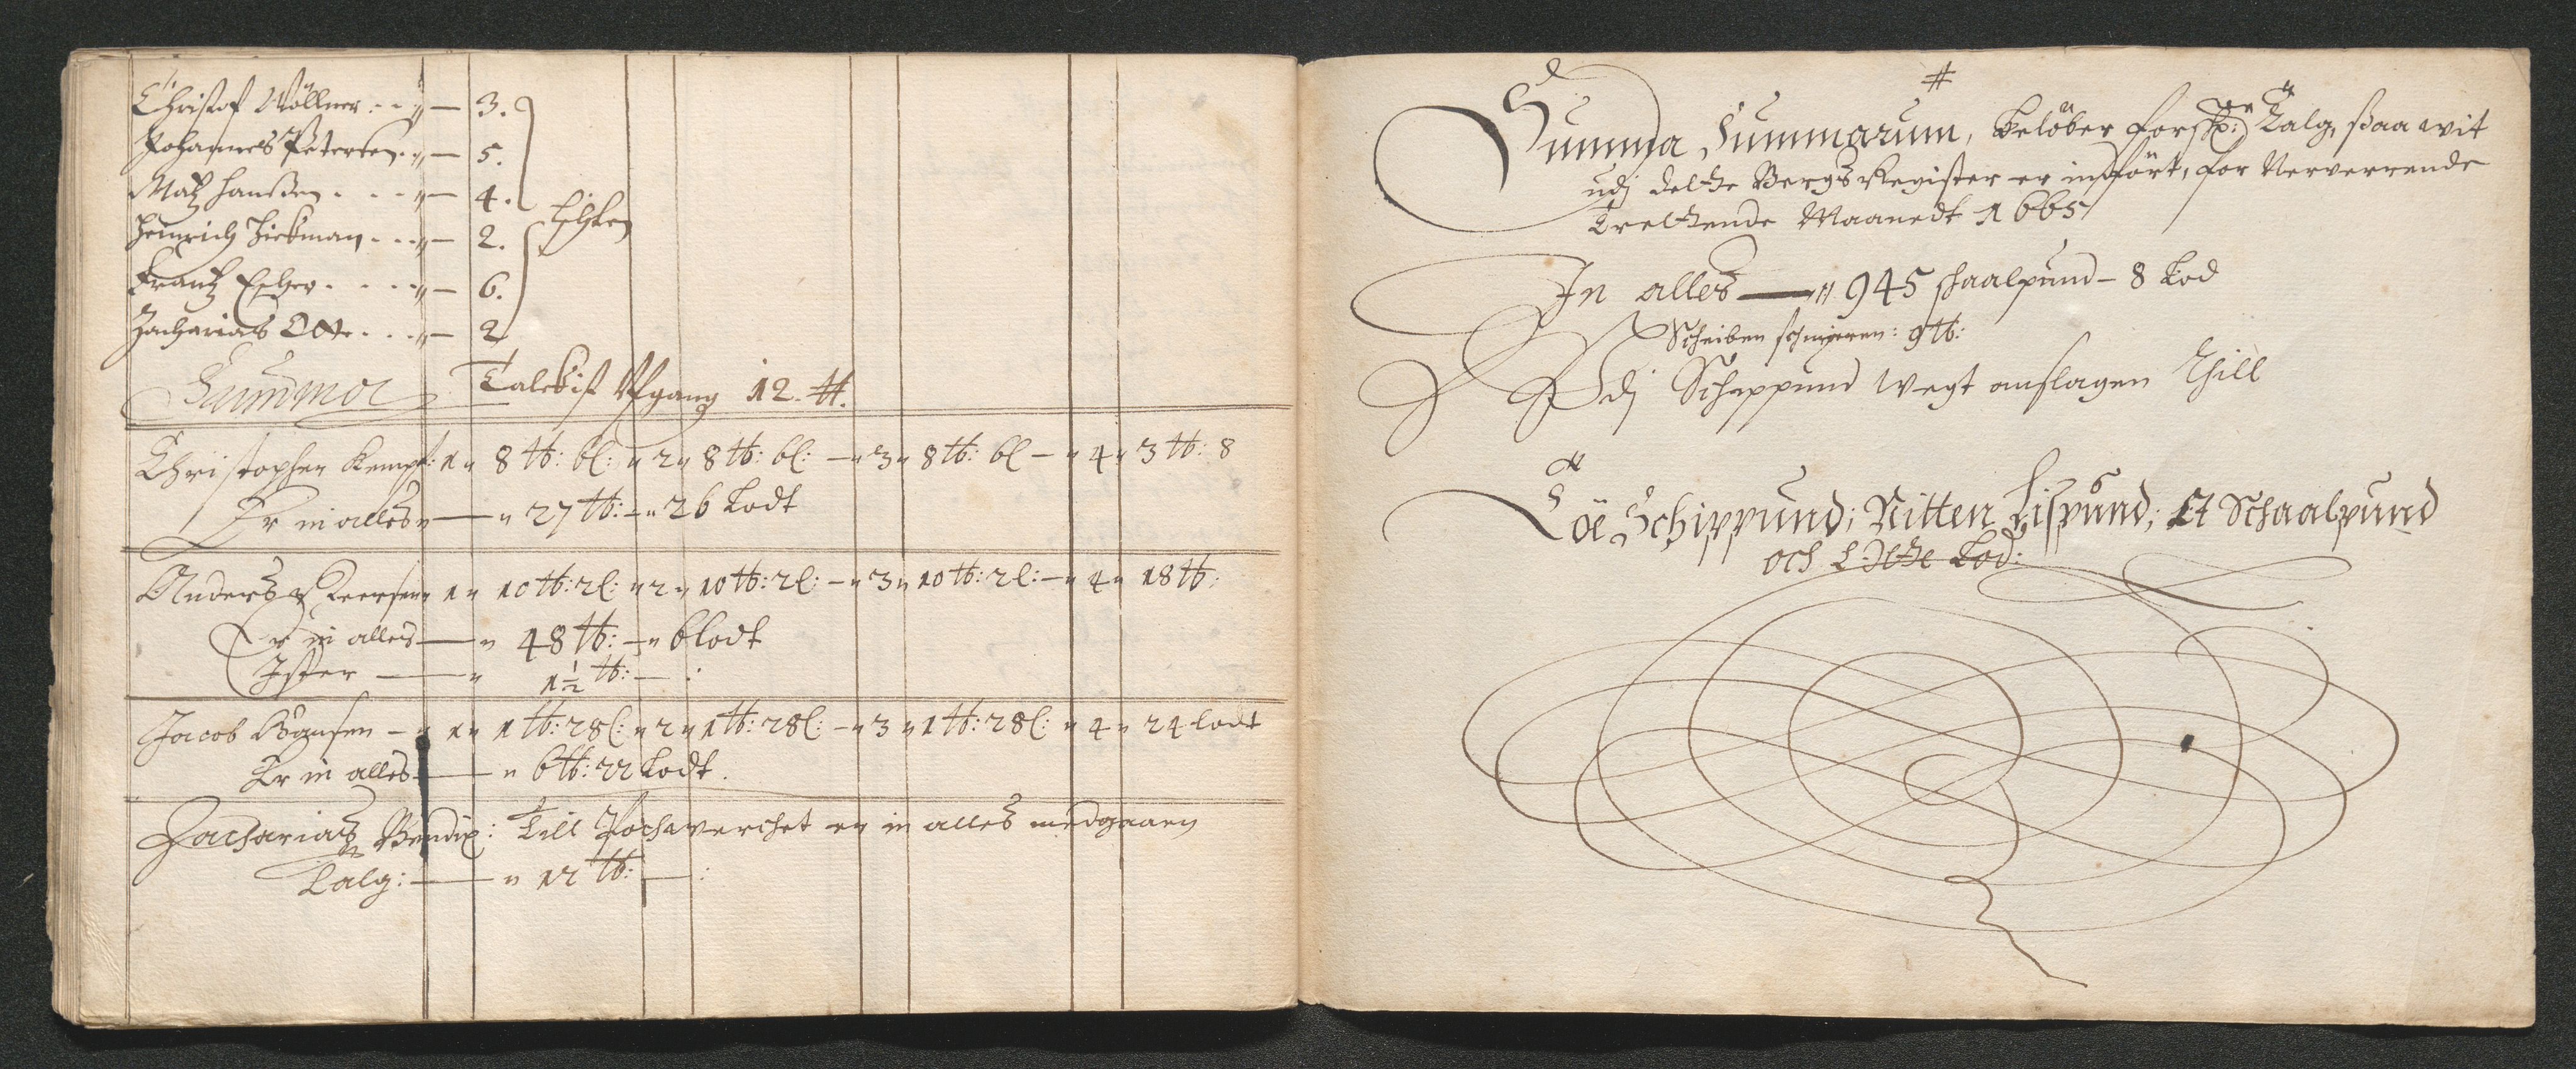 Christof Möllner . . „ — 3.
Johannes Petersen . „ — 5.
Matz Hanßen . . . „ — 4.
Heinrich Hickman . . „ — 2.
Frantz Escher . . . „ — 6.
Zacharias Otte . . . „ — 2
Summa Talckist Afgang 12. ℔.
Christopher Kempf: 1 „ 8 ℔: 6l: „ 2 „ 8 ℔: 6l: — „ 3 „ 8 ℔: 6l — „ 4 „ 3 ℔: 8
Er in alles „ — „ 27 ℔: — „ 26 Lodt
Anders Iversen „ 1 „ 10 ℔: 2l: „ 2 „ 10 ℔: 2l: — „ 3 „ 10 ℔: 2l: — „ 4 „ 18 ℔:
Er in alles — „ 48 ℔: — „ 6 lodt
Ister — „ 1½ ℔: — :
Jacob Hansen — „ 1 „ 1 ℔: 28l: „ 2 „ 1 ℔: 28l: — „ 3 „ 1 ℔: 28l: „ 4 „ 24 lodt
Er in alles — „ 6 ℔: 22 Lodt.
Zacharias Bendix: Till Pochverchet er in alles medgaaen
Talg: — „ 12 ℔: — :
Summa Summarum, Belöber forsk: Talg, saa wit
udj dette Bergs Register er indfört, for Nerverrende
Trettende Maanedt 1665
In alles — „ 945 skaalpund — 8 Lod
Scheiben schmieren: 9 ℔:
Udj Schippund Wegt anslagen Thill
Toe Schippund; Nitten Lispund; Et Schaalpund
och Otte Lod: